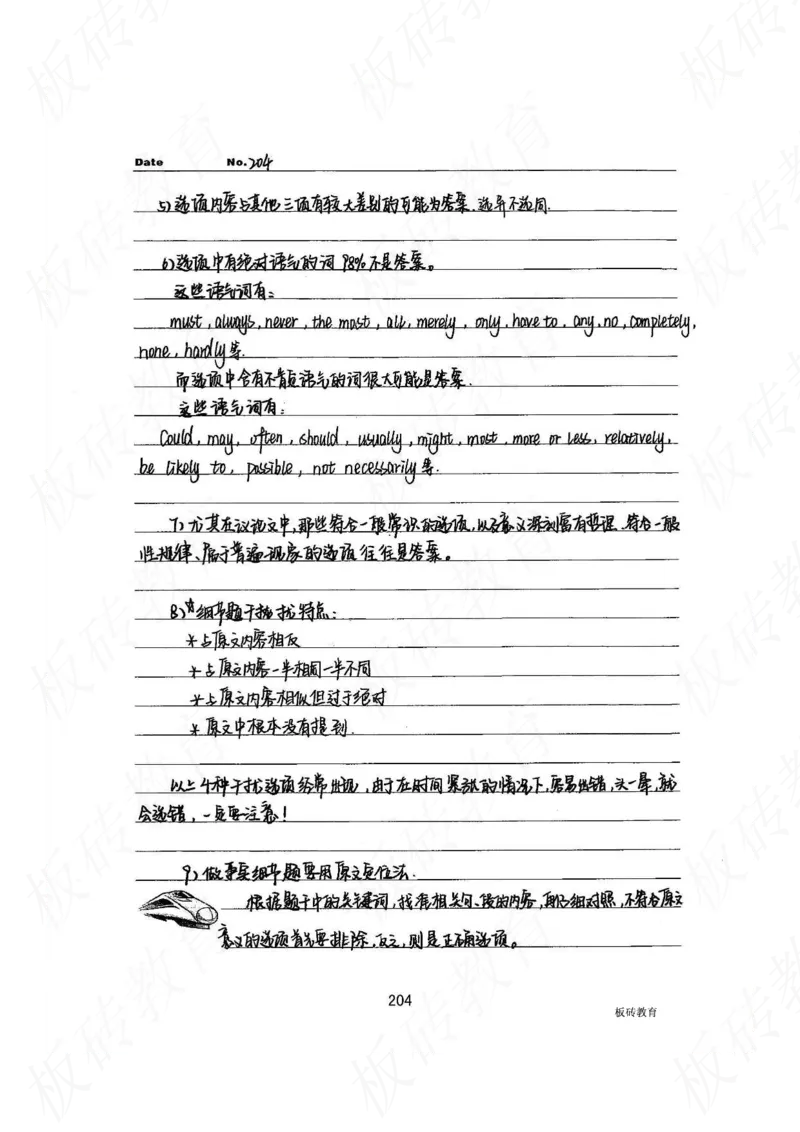 Date No. 204
5) 选项内容与其他三项有较大差别的可能为答案. 选异不选同.
6) 选项中有绝对语气的词 98% 不是答案。
这些语气词有:
must, always, never, the most, all, merely, only, have to, any, no, completely,
none, hardly 等.
而选项中含有不肯定语气的词很大可能是答案.
这些语气词有:
Could, may, often, should, usually, might, most, more or less, relatively,
be likely to, possible, not necessarily 等.
7) 尤其在议论文中,那些符合一般常识的选项,以及意义深刻富有哲理、符合一般
性规律、属于普遍现象的选项往往是答案。
8) ☆细节题干扰特点:
*与原文内容相反
*与原文内容一半相同一半不同
*与原文内容相似但过于绝对
*原文中根本没有提到.
以上4种干扰选项经常出现,由于在时间紧张的情况下,容易出错,头一晕,就
会选错,一定要注意!
9) 做事实细节题要用原文定位法.
根据题干中的关键词,找准相关句、段的内容,再仔细对照,不符合原文
意义的选项首先要排除,反之,则是正确选项。
204
板砖教育